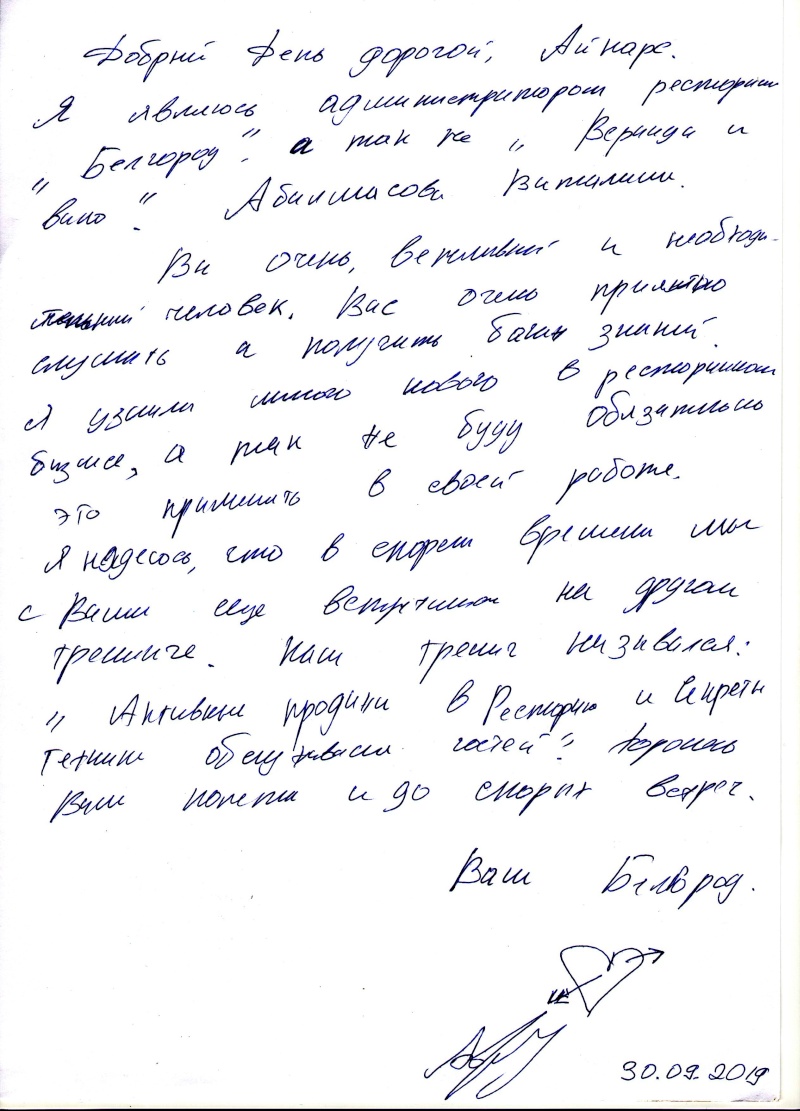 Добрий День дорогой, Айнарс.
Я являюсь администратором ресторана
„Белгород". а так же „Веранда и
вино". Абилтасова Виталина.
Ви очень, вежливий и необходи-
тельний человек. Вас очень приятно
слушать и получить багаж знаний.
Я узнала много нового в ресторанном
бизнесе, а так же буду обязательно
это применять в своей работе.
Я надеюсь, что в скором времени мы
с Вами еще встретимся на другом
тренинге. Наш тренинг називался:
„Активние продажи в Ресторане и Секрети
техники обслуживания гостей". Хорошого
Вам полета и до скорых встреч.
Ваш Белгород.
30.09.2019